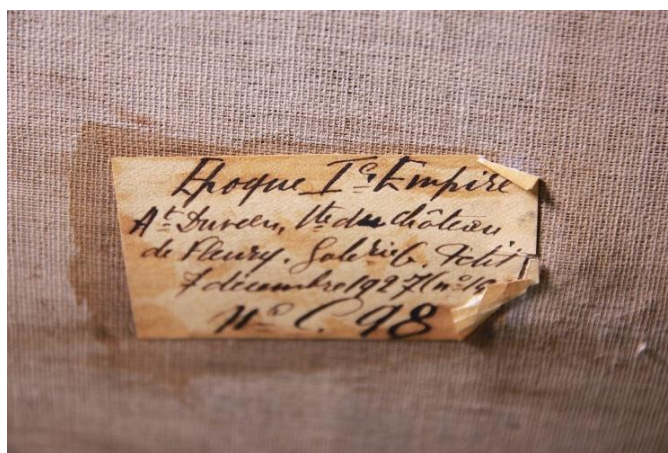 Epoque Ier Empire
At Duveen, Vte du château
de Fleury. Galerie G. Petit
7 décembre 1927 (no
No C. 98